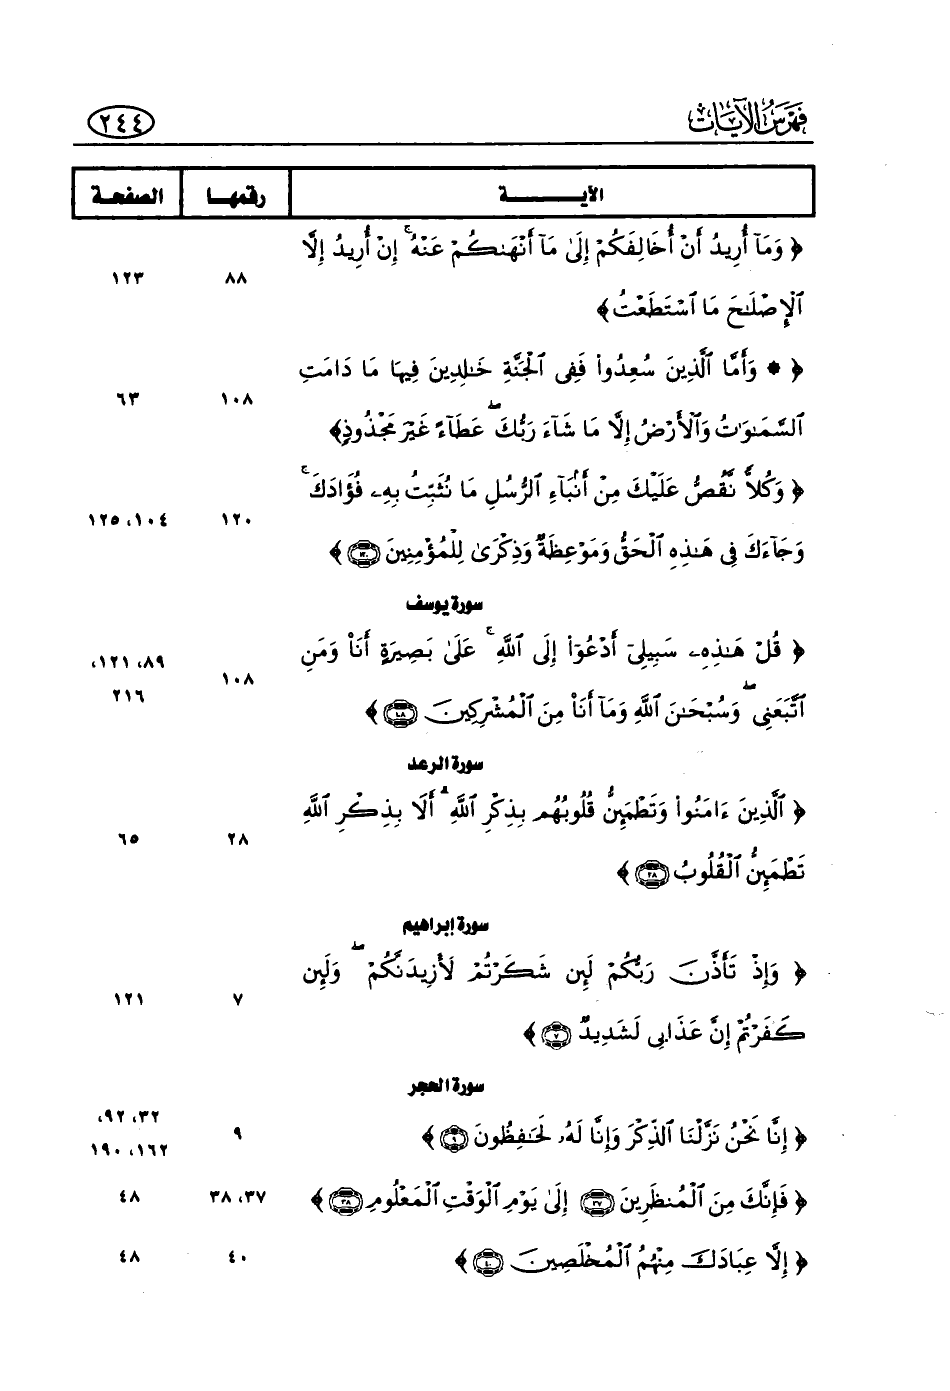 فهرس الآيات ٢٤٤
الآيـــــــة رقمهـا الصفحـة
﴿ وَمَآ أُرِيدُ أَنْ أُخَالِفَكُمْ إِلَىٰ مَآ أَنْهَىٰكُمْ عَنْهُ ۚ إِنْ أُرِيدُ إِلَّا
ٱلْإِصْلَـٰحَ مَا ٱسْتَطَعْتُ﴾ ٨٨ ١٢٣
﴿ * وَأَمَّا ٱلَّذِينَ سُعِدُوا۟ فَفِى ٱلْجَنَّةِ خَـٰلِدِينَ فِيهَا مَا دَامَتِ
ٱلسَّمَـٰوَٰتُ وَٱلْأَرْضُ إِلَّا مَا شَآءَ رَبُّكَ ۖ عَطَآءً غَيْرَ مَجْذُوذٍ﴾ ١٠٨ ٦٣
﴿ وَكُلًّا نَّقُصُّ عَلَيْكَ مِنْ أَنۢبَآءِ ٱلرُّسُلِ مَا نُثَبِّتُ بِهِۦ فُؤَادَكَ ۚ
وَجَآءَكَ فِى هَـٰذِهِ ٱلْحَقُّ وَمَوْعِظَةٌ وَذِكْرَىٰ لِلْمُؤْمِنِينَ ١٢٠ ﴾ ١٢٠ ١٠٤، ١٢٥
سورة يوسف
﴿ قُلْ هَـٰذِهِۦ سَبِيلِىٓ أَدْعُوٓا۟ إِلَى ٱللَّهِ ۚ عَلَىٰ بَصِيرَةٍ أَنَا۠ وَمَنِ ٨٩، ١٢١،
ٱتَّبَعَنِى ۖ وَسُبْحَـٰنَ ٱللَّهِ وَمَآ أَنَا۠ مِنَ ٱلْمُشْرِكِينَ ١٠٨ ﴾ ١٠٨ ٢١٦
سورة الرعد
﴿ ٱلَّذِينَ ءَامَنُوا۟ وَتَطْمَئِنُّ قُلُوبُهُم بِذِكْرِ ٱللَّهِ ۗ أَلَا بِذِكْرِ ٱللَّهِ
تَطْمَئِنُّ ٱلْقُلُوبُ ٢٨ ﴾ ٢٨ ٦٥
سورة إبراهيم
﴿ وَإِذْ تَأَذَّنَ رَبُّكُمْ لَئِن شَكَرْتُمْ لَأَزِيدَنَّكُمْ ۖ وَلَئِن
كَفَرْتُمْ إِنَّ عَذَابِى لَشَدِيدٌ ٧ ﴾ ٧ ١٢١
سورة الحجر
﴿ إِنَّا نَحْنُ نَزَّلْنَا ٱلذِّكْرَ وَإِنَّا لَهُۥ لَحَـٰفِظُونَ ٩ ﴾ ٩ ٣٢، ٩٢،
١٦٢، ١٩٠
﴿ فَإِنَّكَ مِنَ ٱلْمُنظَرِينَ ٣٧ إِلَىٰ يَوْمِ ٱلْوَقْتِ ٱلْمَعْلُومِ ٣٨ ﴾ ٣٧، ٣٨ ٤٨
﴿ إِلَّا عِبَادَكَ مِنْهُمُ ٱلْمُخْلَصِينَ ٤٠ ﴾ ٤٠ ٤٨